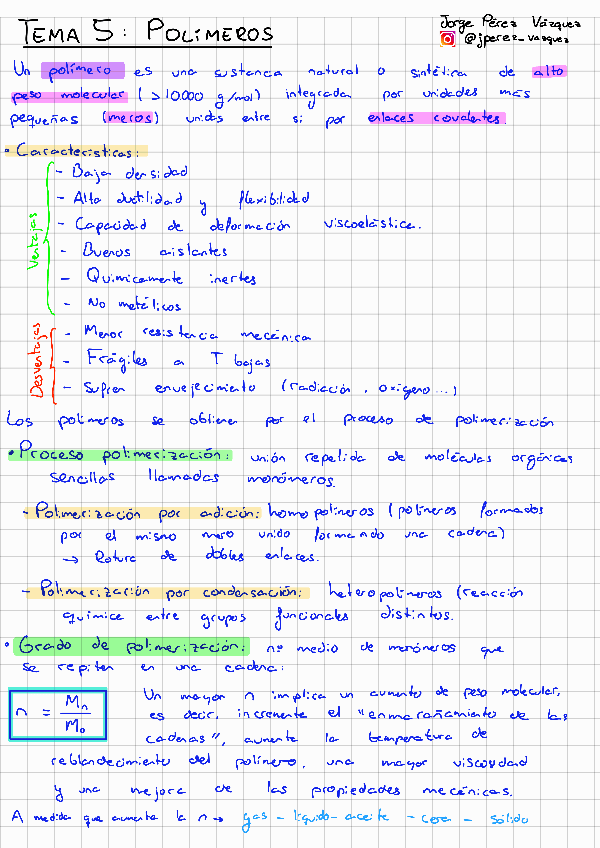 TEMA 5: POLÍMEROS
Jorge Pérez Vázquez
@jperez_vazquez
Un polímero es una sustancia natural o sintética de alto
peso molecular (>10.000 g/mol) integrada por unidades más
pequeñas (meros) unidas entre si por enlaces covalentes.
• Características:
Ventajas
- Baja densidad
- Alta ductilidad y flexibilidad
- Capacidad de deformación viscoelástica.
- Buenos aislantes
- Químicamente inertes
- No metálicos
Desventajas
- Menor resistencia mecánica
- Frágiles a T bajas
- Sufren envejecimiento (radiación, oxígeno...)
Los polímeros se obtienen por el proceso de polimerización
• Proceso polimerización: unión repetida de moléculas orgánicas
sencillas llamadas monómeros.
- Polimerización por adición: homopolímeros (polímeros formados
por el mismo mero unido formando una cadena)
→ Rotura de dobles enlaces.
- Polimerización por condensación: heteropolímeros (reacción
química entre grupos funcionales distintos.
• Grado de polimerización: nº medio de monómeros que
se repiten en una cadena:
n = Mn / Mo
Un mayor n implica un aumento de peso molecular,
es decir, incrementa el "enmarañamiento de las
cadenas", aumenta la temperatura de
reblandecimiento del polímero, una mayor viscosidad
y una mejora de las propiedades mecánicas.
A medida que aumenta la n → gas - líquido - aceite - cera - sólido